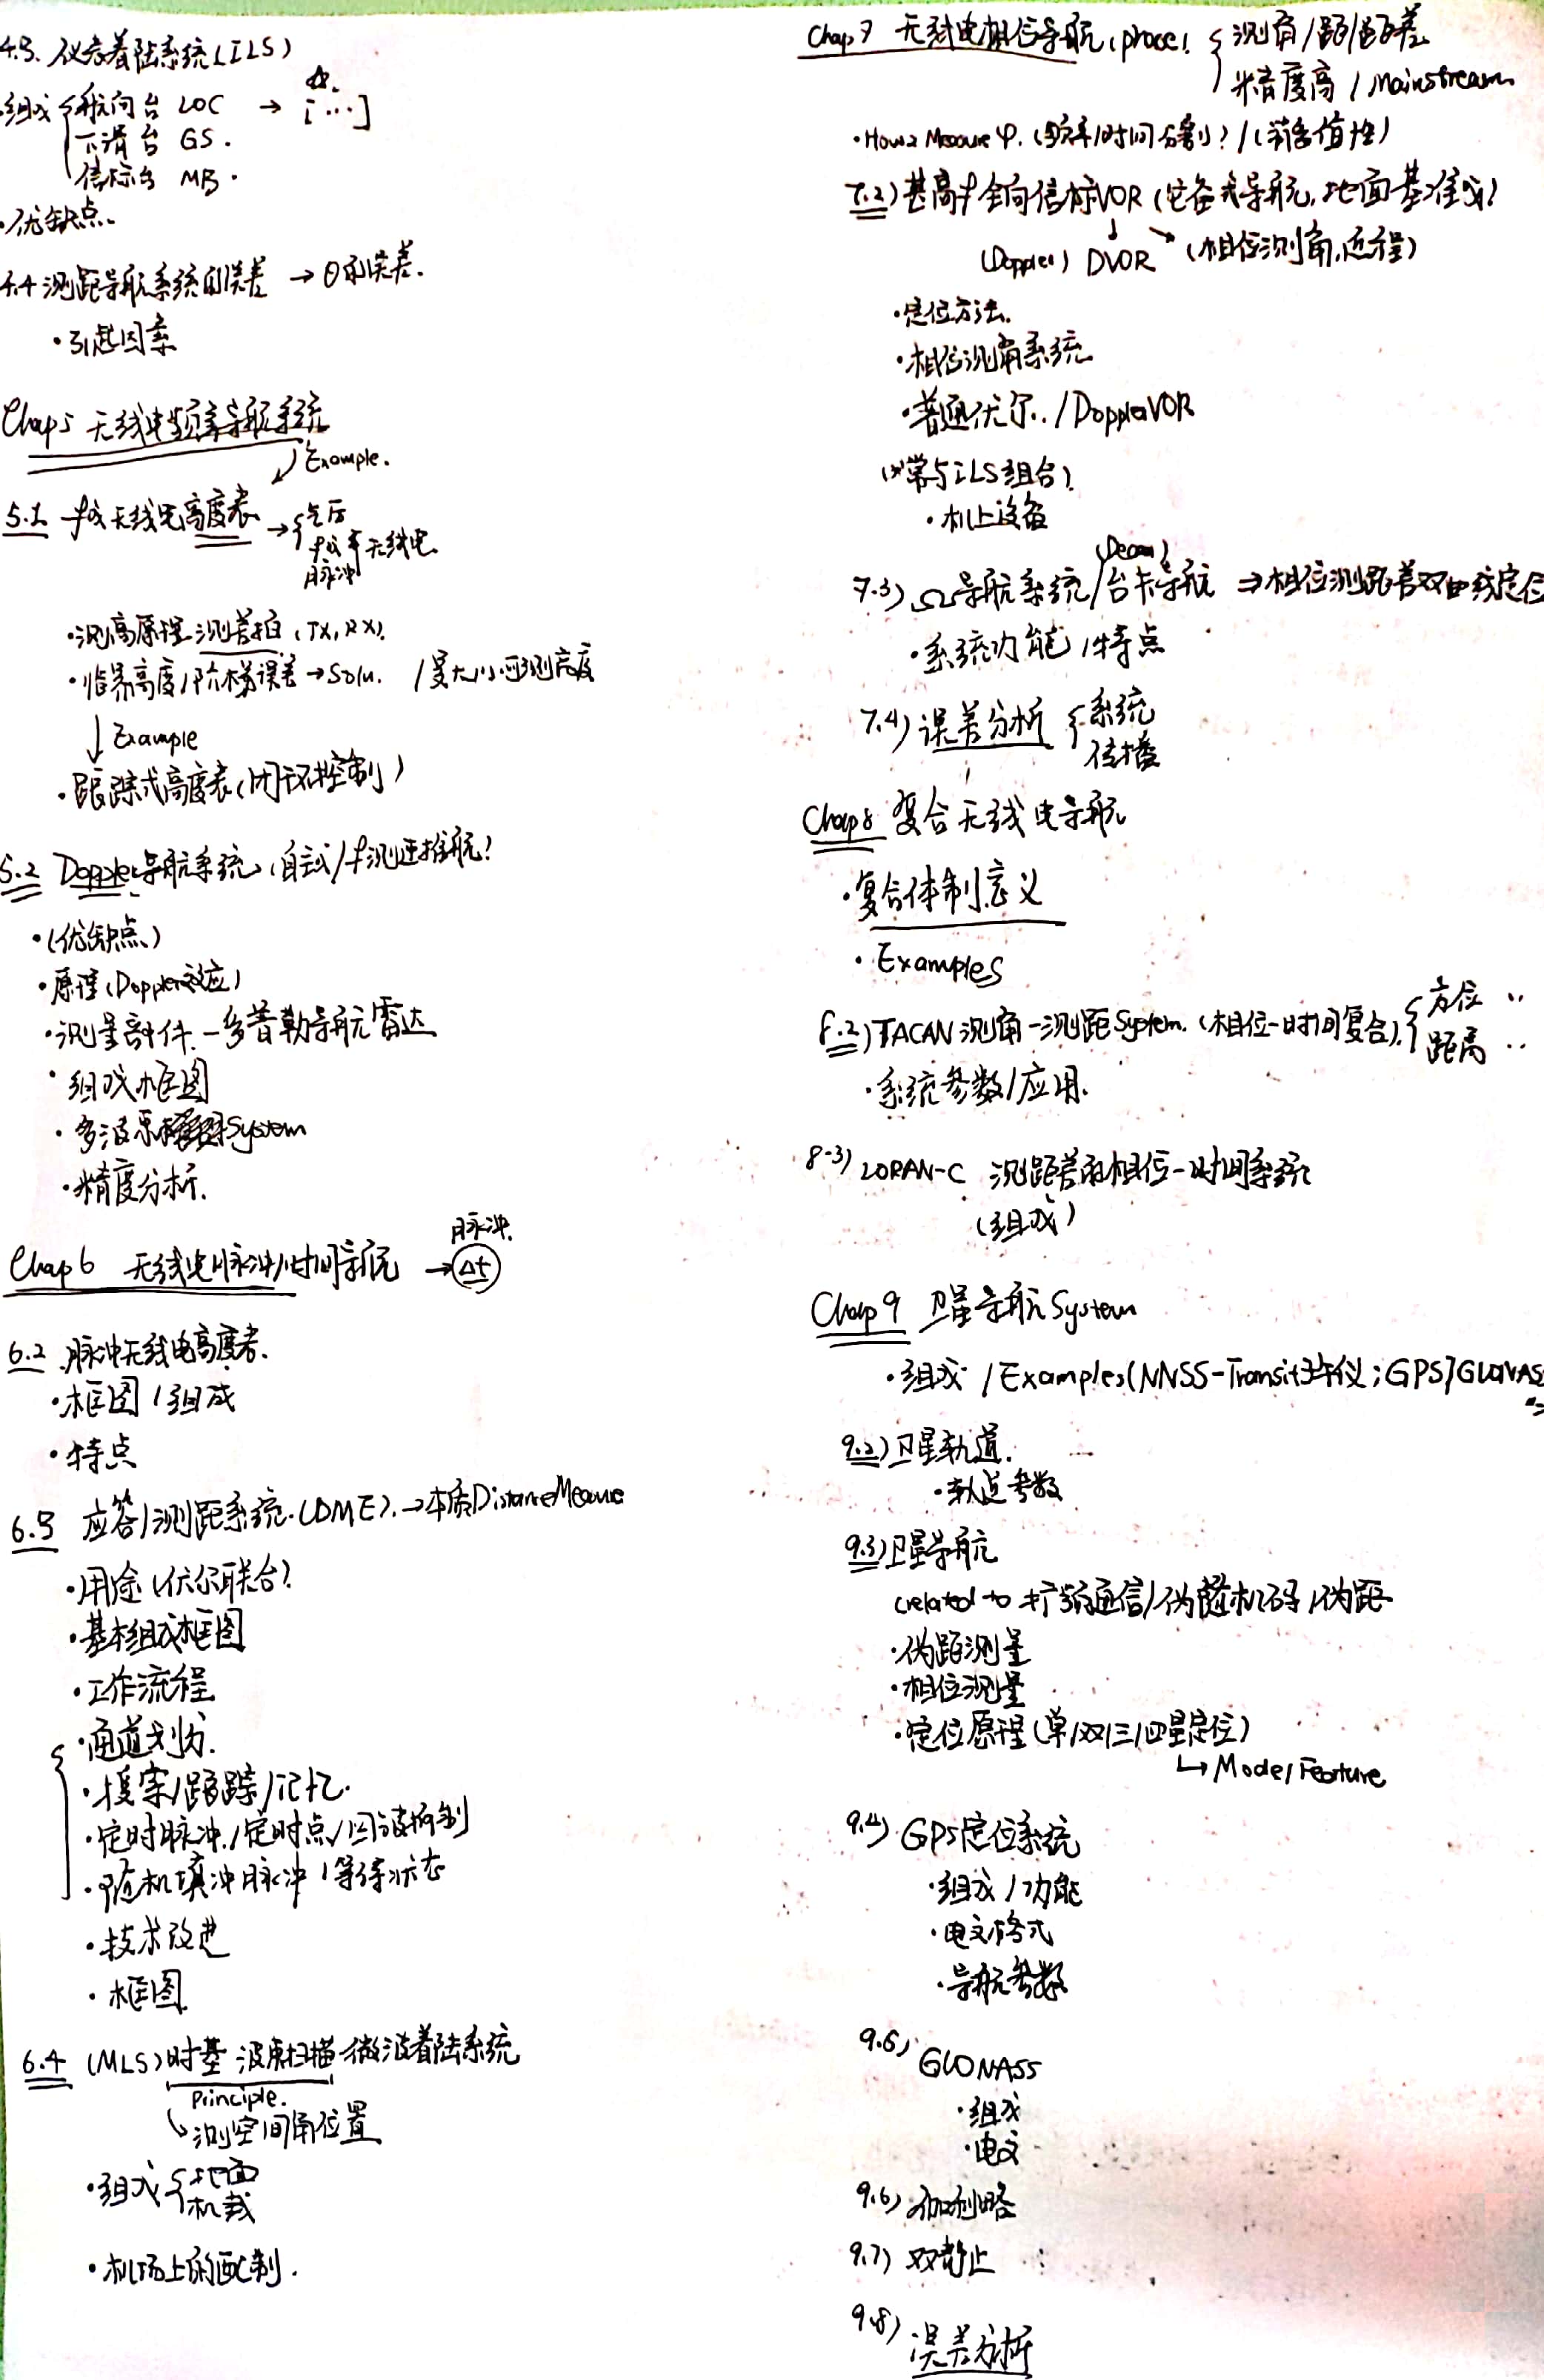 4.3. 仪表着陆系统(ILS)
·组成 { 航向台 LOC → [...]
下滑台 GS.
信标台 MB.
·优缺点.
4.4 测距导航系统的误差 → θ的误差.
·引起因素
Chap5 无线电频率导航系统
Example.
5.1 f成无线电高度表 → { 气压
f率无线电
脉冲
·测高原理:测差拍(TX,RX).
·临界高度/阶梯误差→Solu. /最大小可测高度
↓ Example
·跟踪式高度表(闭环控制)
5.2 Doppler导航系统(自主式/f测速推航)
·(优缺点)
·原理(Doppler效应)
·测量部件-多普勒导航雷达
·组成框图
·多波束System
·精度分析.
Chap 6 无线电脉冲/时间导航 → Δt 脉冲.
6.2 脉冲无线电高度表.
·框图/组成
·特点
6.3 应答/测距系统.(DME).→本质Distance Measure
·用途(伏尔联合)
·基本组成框图
·工作流程
·通道划分.
·搜索/跟踪/记忆.
·定时脉冲/定时点/回波抑制
·随机填冲脉冲/等待状态
·技术改进
·框图
6.4 (MLS)时基波束扫描微波着陆系统
Principle.
↳测空间角位置
·组成 { 地面
机载
·机场上的配制.
Chap7 无线电相位导航(phase) { 测角/距/距差
精度高/Mainstream
·How2 Measure φ. (频率/时间分割)/(等值性)
7.2) 甚高f全向信标VOR (它备式导航,地面基准式)
(Doppler) DVOR (相位测角,近程)
·定位方法.
·相位测角系统
·普通伏尔../DopplerVOR
(常与ILS组合)
·机上设备
7.3) Ω导航系统/台卡导航 ⇒相位测距差双曲线定位
(Decca)
·系统功能/特点
7.4) 误差分析 { 系统
传播
Chap8 复合无线电导航
·复合体制意义
·Examples
8.2) TACAN 测角-测距System.(相位-时间复合). { 方位 ..
距离 ..
·系统参数/应用.
8-3) LORAN-C 测距差的相位-时间系统
(组成)
Chap 9 卫星导航System
·组成/Examples(NNSS-Transit子午仪;GPS/GLONASS
9.2) 卫星轨道.
·轨道参数
9.3) 卫星导航
(related to 扩频通信/伪随机码/伪距
·伪距测量
·相位测量
·定位原理(单/双/三/四星定位)
↳Model Feature
9.4) GPS定位系统
·组成/功能
·电文格式
·导航参数
9.5) GLONASS
·组成
·电文
9.6) 伽利略
9.7) 双静止
9.8) 误差分析